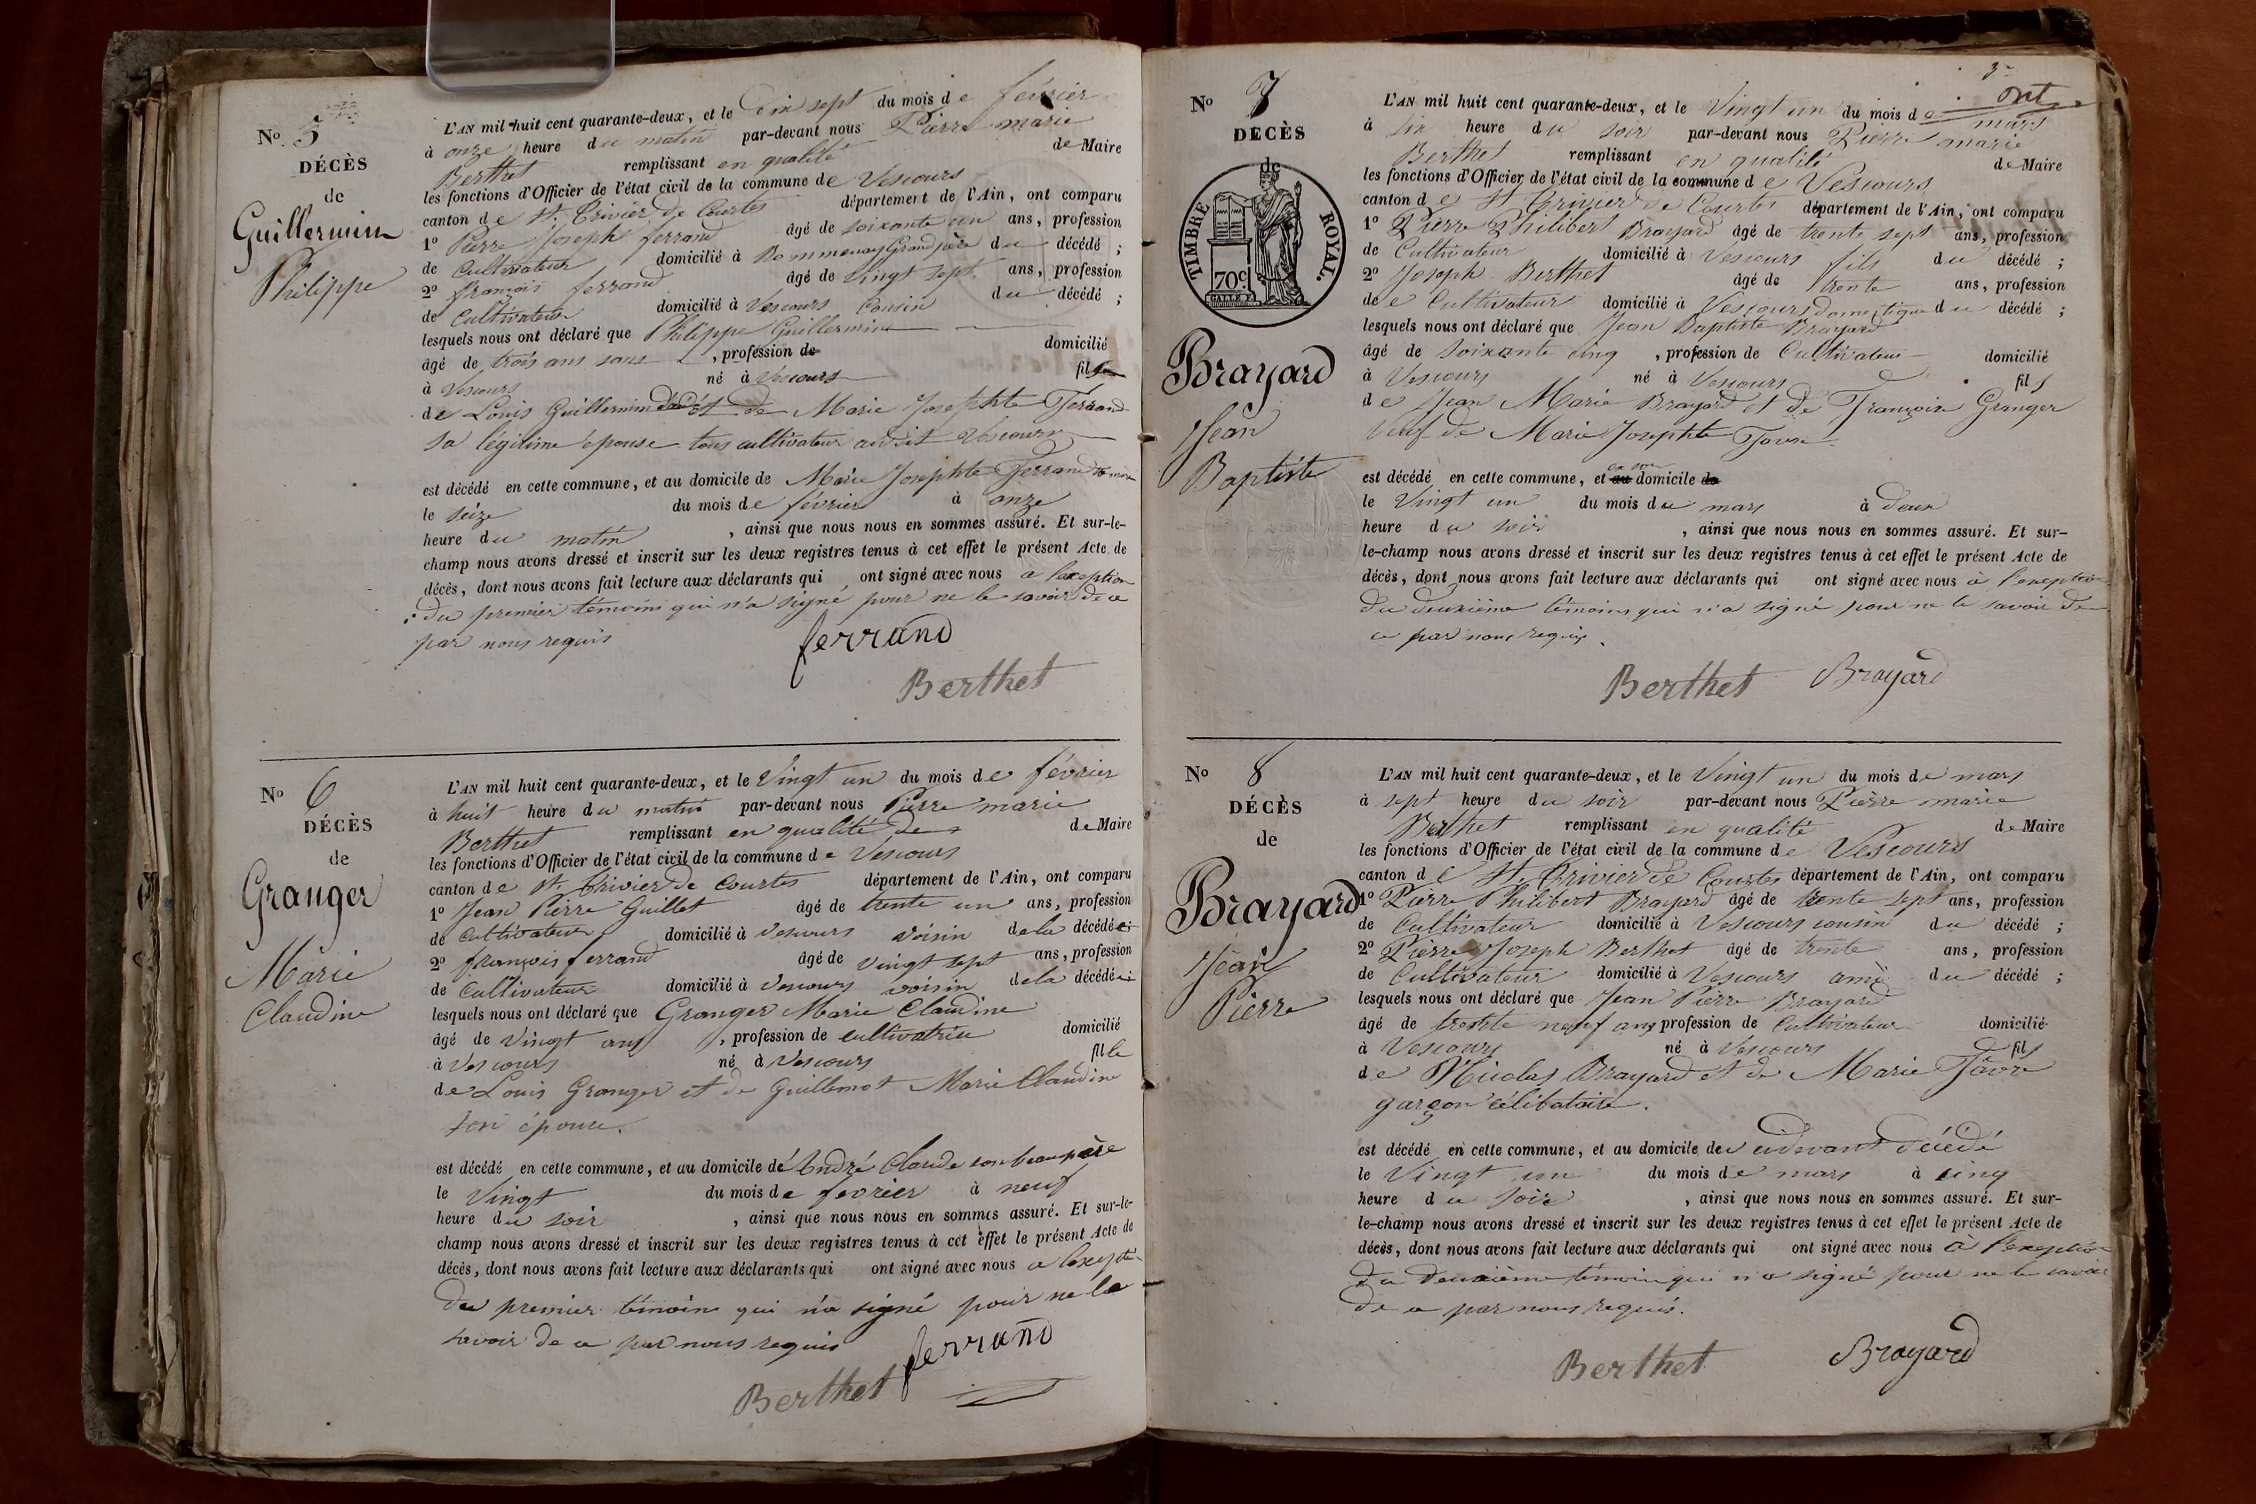 No. 5
DÉCÈS
de
Guillermin
Philippe
L'AN mil huit cent quarante-deux, et le dix sept du mois de février
à onze heure du matin par-devant nous Pierre marie
Berthet remplissant en qualité de Maire
les fonctions d'Officier de l'état civil de la commune de Vescours
canton de St. Trivier de Courtes département de l'Ain, ont comparu
1º Pierre Joseph ferrand âgé de soixante un ans, profession
de Cultivateur domicilié à Rommenay Grand père du décédé ;
2º françois ferrand âgé de vingt sept ans, profession
de Cultivateur domicilié à Vescours Cousin du décédé ;
lesquels nous ont déclaré que Philippe Guillermin
âgé de trois ans sans , profession de domicilié
à Vescours né à Vescours fils
de Louis Guillermin et de Marie Josephte Ferrand
sa légitime épouse tous cultivateur audit Vescours
est décédé en cette commune, et au domicile de Marie Josephte Ferrand
le seize du mois de février à onze
heure du matin , ainsi que nous nous en sommes assuré. Et sur-le-
champ nous avons dressé et inscrit sur les deux registres tenus à cet effet le présent Acte de
décès, dont nous avons fait lecture aux déclarants qui ont signé avec nous a lexception
du premier témoin qui n'a signé pour ne le savoir de ce
par nous requis
ferrand
Berthet
No 6
DÉCÈS
de
Granger
Marie
Claudine
L'AN mil huit cent quarante-deux, et le Vingt un du mois de février
à huit heure du matin par-devant nous Pierre marie
Berthet remplissant en qualité de de Maire
les fonctions d'Officier de l'état civil de la commune de Vescours
canton de St. Trivier de Courtes département de l'Ain, ont comparu
1º Jean Pierre Guillet âgé de trente un ans, profession
de Cultivateur domicilié à Vescours voisin de la décédée
2º françois ferrand âgé de vingt sept ans, profession
de Cultivateur domicilié à Vescours voisin de la décédée
lesquels nous ont déclaré que Granger Marie Claudine
âgé de vingt ans , profession de cultivatrice domicilié
à Vescours né à Vescours fille
de Louis Granger et de Guillemot Marie Claudine
son épouse.
est décédé en cette commune, et au domicile de André Claude son beau père
le Vingt du mois de fevrier à neuf
heure du soir , ainsi que nous nous en sommes assuré. Et sur-le-
champ nous avons dressé et inscrit sur les deux registres tenus à cet effet le présent Acte de
décès, dont nous avons fait lecture aux déclarants qui ont signé avec nous a
du premier témoin qui n'a signé pour ne le
savoir de ce par nous requis
ferrand
Berthet
No 7
DÉCÈS
de
TIMBRE ROYAL.
70c
Brayard
Jean
Baptiste
L'AN mil huit cent quarante-deux, et le Vingt un du mois de mars
à six heure du soir par-devant nous Pierre marie
Berthet remplissant en qualité de Maire
les fonctions d'Officier de l'état civil de la commune de Vescours
canton de St Trivier de Courtes département de l'Ain, ont comparu
1º Pierre Philibert Brayard âgé de trente sept ans, profession
de Cultivateur domicilié à Vescours fils du décédé ;
2º Joseph Berthet âgé de trente ans, profession
de Cultivateur domicilié à Vescours domestique du décédé ;
lesquels nous ont déclaré que Jean Baptiste Brayard
âgé de soixante cinq , profession de Cultivateur domicilié
à Vescours né à Vescours fils
de Jean Marie Brayard et de Françoise Granger
veuf de Marie Josephte Favre
est décédé en cette commune, et au en son domicile de
le Vingt un du mois de mars à deux
heure du soir , ainsi que nous nous en sommes assuré. Et sur-
le-champ nous avons dressé et inscrit sur les deux registres tenus à cet effet le présent Acte de
décès, dont nous avons fait lecture aux déclarants qui ont signé avec nous à l'exception
du deuxième témoins qui n'a signé pour ne le savoir de
ce par nous requis.
Berthet Brayard
No 8
DÉCÈS
de
Brayard
Jean
Pierre
L'AN mil huit cent quarante-deux, et le Vingt un du mois de mars
à sept heure du soir par-devant nous Pierre marie
Berthet remplissant en qualité de Maire
les fonctions d'Officier de l'état civil de la commune de Vescours
canton de St. Trivier de Courtes département de l'Ain, ont comparu
1º Pierre Philibert Brayard âgé de trente sept ans, profession
de Cultivateur domicilié à Vescours cousin du décédé ;
2º Pierre Joseph Berthet âgé de trente ans, profession
de Cultivateur domicilié à Vescours ami du décédé ;
lesquels nous ont déclaré que Jean Pierre Brayard
âgé de trente neuf ans profession de Cultivateur domicilié
à Vescours né à Vescours fils
de Nicolas Brayard et de Marie Favre
garçon célibataire.
est décédé en cette commune, et au domicile du cidevant décédé
le Vingt un du mois de mars à cinq
heure du soir , ainsi que nous nous en sommes assuré. Et sur-
le-champ nous avons dressé et inscrit sur les deux registres tenus à cet effet le présent Acte de
décès, dont nous avons fait lecture aux déclarants qui ont signé avec nous à l'exception
du deuxième témoin qui n'a signé pour ne le savoir
de ce par nous requis.
Berthet Brayard